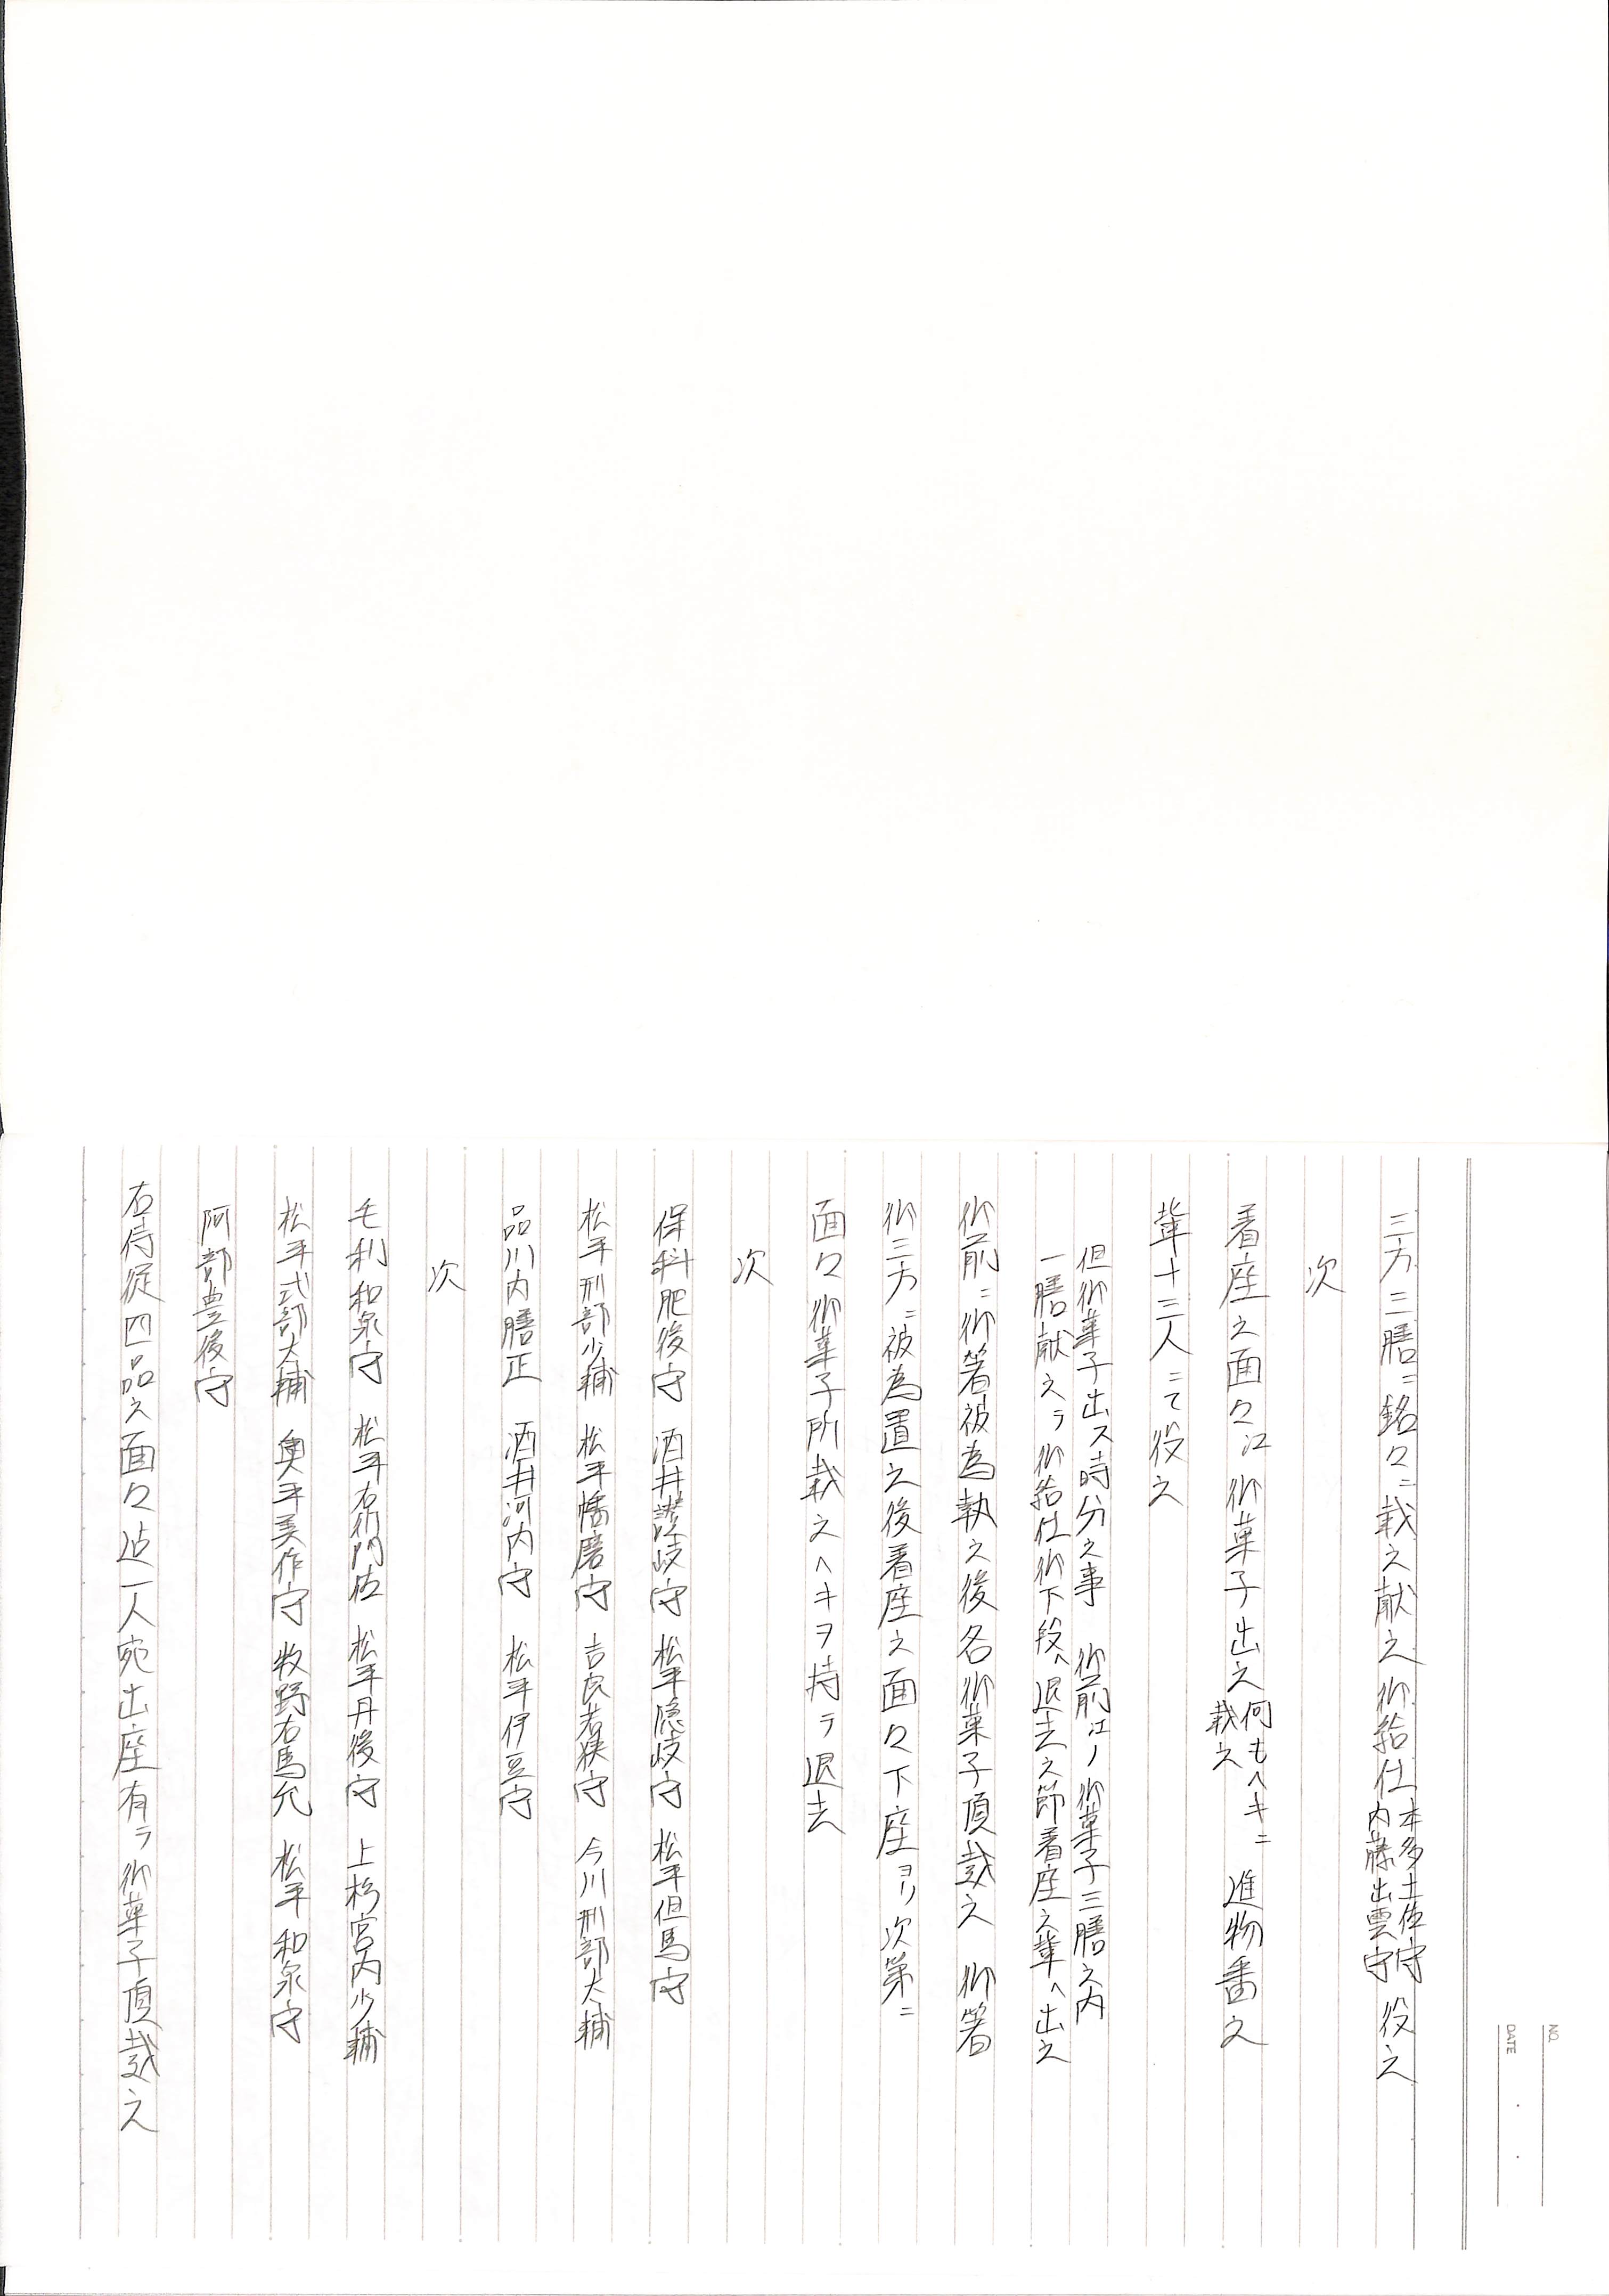 三方三膳ニ銘々ニ載之献之御給仕 本多土佐守 内藤出雲守 役之
次
着座之面々江御菓子出之 何もヘキニ 載之 進物番之
輩十三人ニて役之
但御菓子出ス時分之事 御前江ノ御菓子三膳之内
一膳献之テ御給仕御下段ヘ退去之節着座之輩ヘ出之
御前ニ御箸被為執之後各御菓子頂戴之 御箸
御三方ニ被為置之後着座之面々下座ヨリ次第ニ
面々御菓子所載之ヘキヲ持テ退去
次
保科肥後守 酒井讃岐守 松平隠岐守 松平但馬守
松平刑部少輔 松平播磨守 吉良若狭守 今川刑部大輔
品川内膳正 酒井河内守 松平伊豆守
次
毛利和泉守 松平右衛門佐 松平丹後守 上杉宮内少輔
松平式部大輔 奥平美作守 牧野右馬允 松平和泉守
阿部豊後守
右侍従四品之面々迠一人宛出座有テ御菓子頂戴之
NO.
DATE